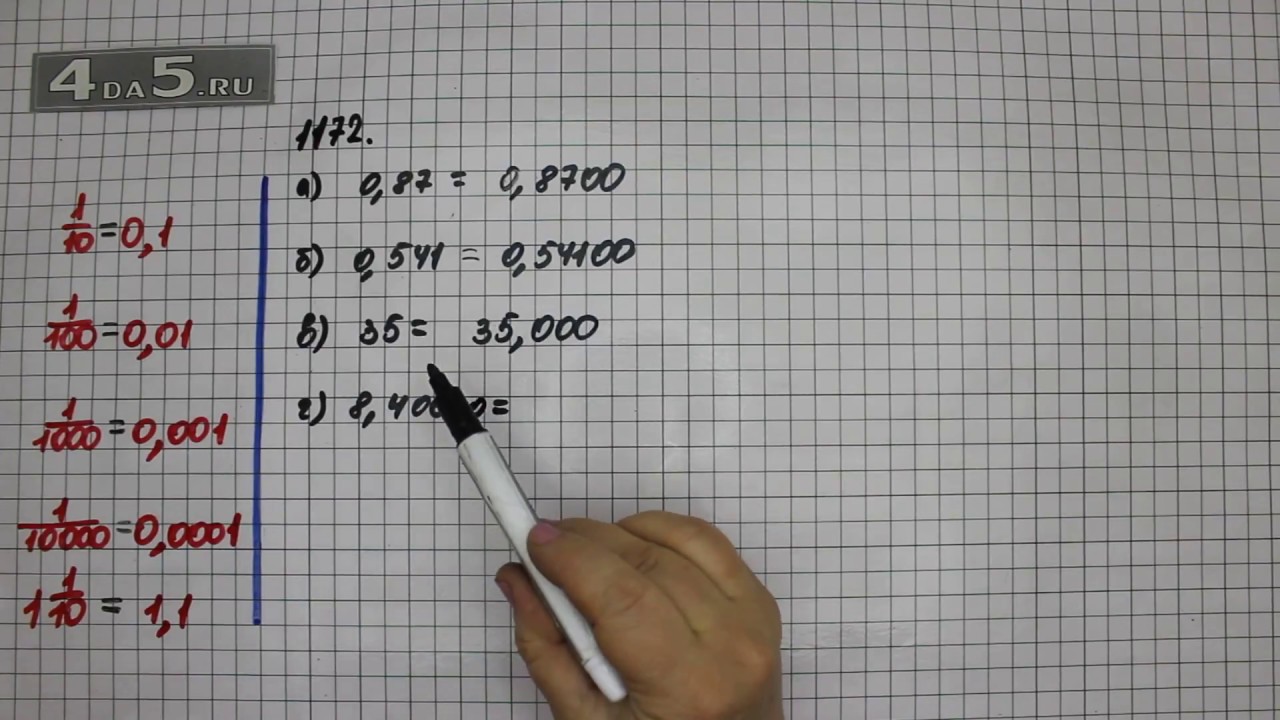 4DA5.RU
1172.
1/10 = 0,1
1/100 = 0,01
1/1000 = 0,001
1/10000 = 0,0001
1 1/10 = 1,1
а) 0,87 = 0,8700
б) 0,541 = 0,54100
в) 35 = 35,000
г)